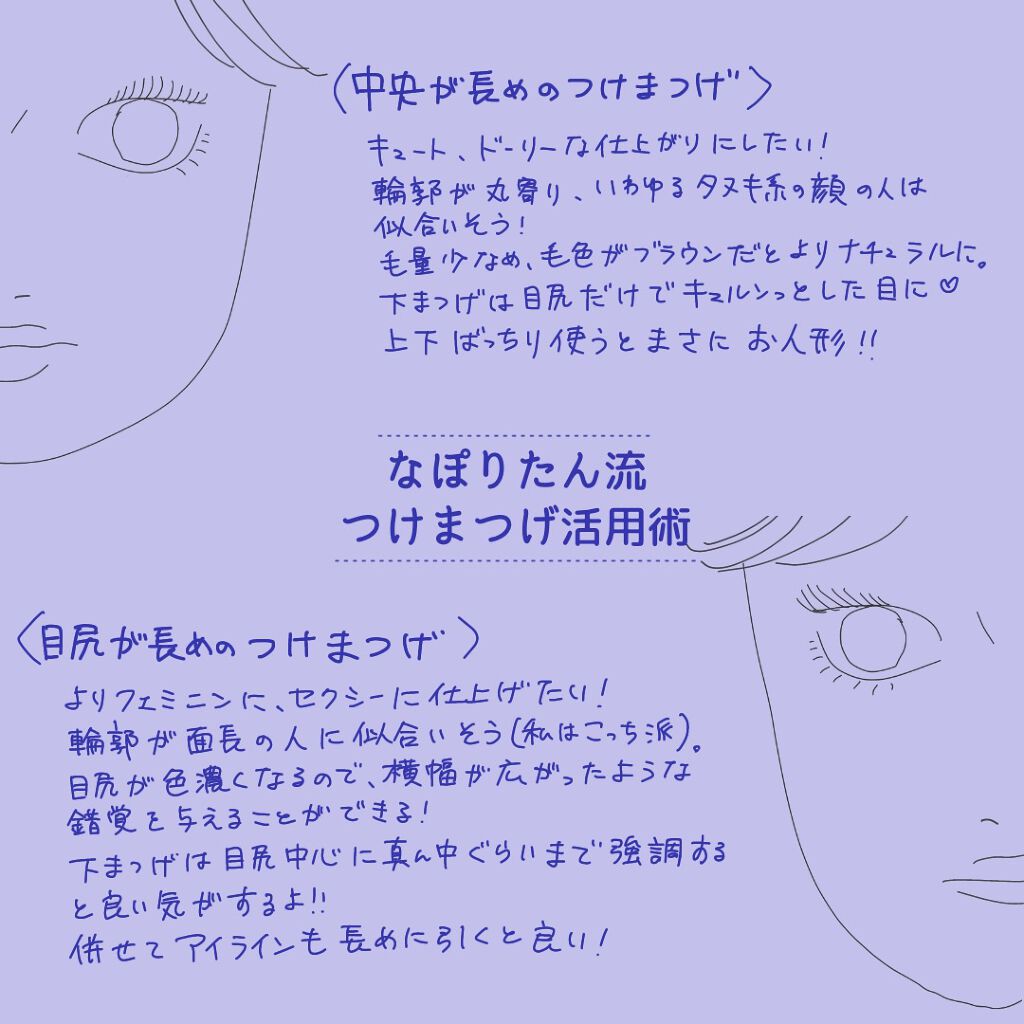 〈中央が長めのつけまつげ〉
キュート、ドーリーな仕上がりにしたい!
輪郭が丸寄り、いわゆるタヌキ系の顔の人は
似合いそう!
毛量少なめ、毛色がブラウンだとよりナチュラルに。
下まつげは目尻だけでキュルンっとした目に♡
上下ばっちり使うとまさにお人形!!
なぽりたん流
つけまつげ活用術
〈目尻が長めのつけまつげ〉
よりフェミニンに、セクシーに仕上げたい!
輪郭が面長の人に似合いそう(私はこっち派)。
目尻が色濃くなるので、横幅が広がったような
錯覚を与えることができる!
下まつげは目尻中心に真ん中ぐらいまで強調する
と良い気がするよ!!
併せてアイラインも長めに引くと良い!